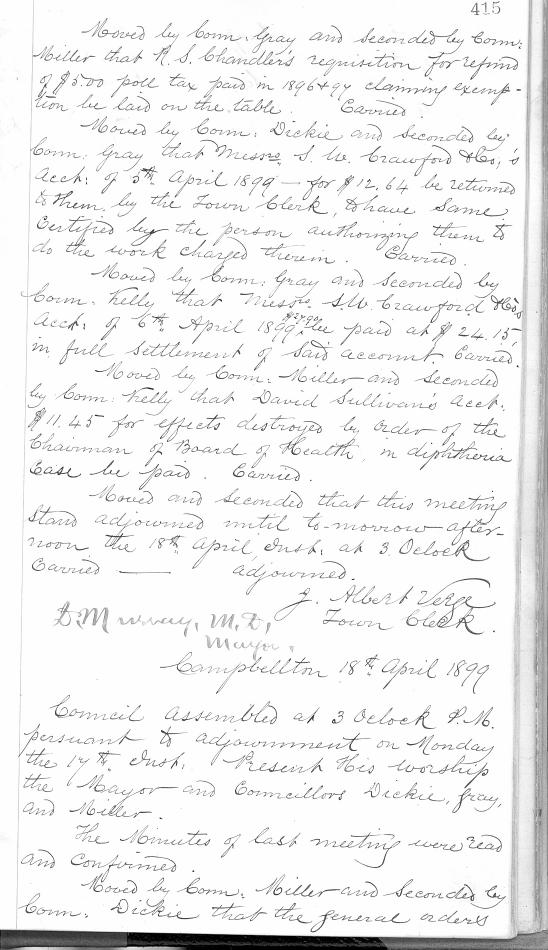 415
Moved by Conn: Gray and seconded by Conn:
Miller that R. S. Chandler's requisition for refund
of $5.00 poll tax paid in 1896 & 97 claiming exemp-
tion be laid on the table. Carried.
Moved by Conn: Dickie and seconded by
Conn: Gray that Messrs. S. W. Crawford & Co,'s
Acct: of 5th April 1899 — for $12.64 be returned
to them by the Town Clerk, to have same
Certified by the person authorizing them to
do the work charged therein. Carried.
Moved by Conn: Gray and seconded by
Conn: Kelly that Messrs S. W. Crawford & Co's
Acct: of 6th April 1899, be paid at $24.15,
in full settlement of said account. Carried.
Moved by Conn: Miller and seconded
by Conn: Kelly that David Sullivan's Acct:
$11.45 for effects destroyed by order of the
Chairman of Board of Health, in diphtheria
Case be paid. Carried.
Moved and seconded that this meeting
stand adjourned until to-morrow after-
noon the 18th April Inst: at 3. Oclock
Carried — adjourned.
J. Albert Verge
Town Clerk.
D Murray, M.D,
Mayor.
Campbellton 18th April 1899
Council assembled at 3 Oclock P.M.
persuant to adjournment on Monday
the 17th Inst: Present His worship
the Mayor and Councillors Dickie, Gray,
and Miller.
The Minutes of last meeting were read
and confirmed.
Moved by Conn: Miller and seconded by
Conn: Dickie that the general orders